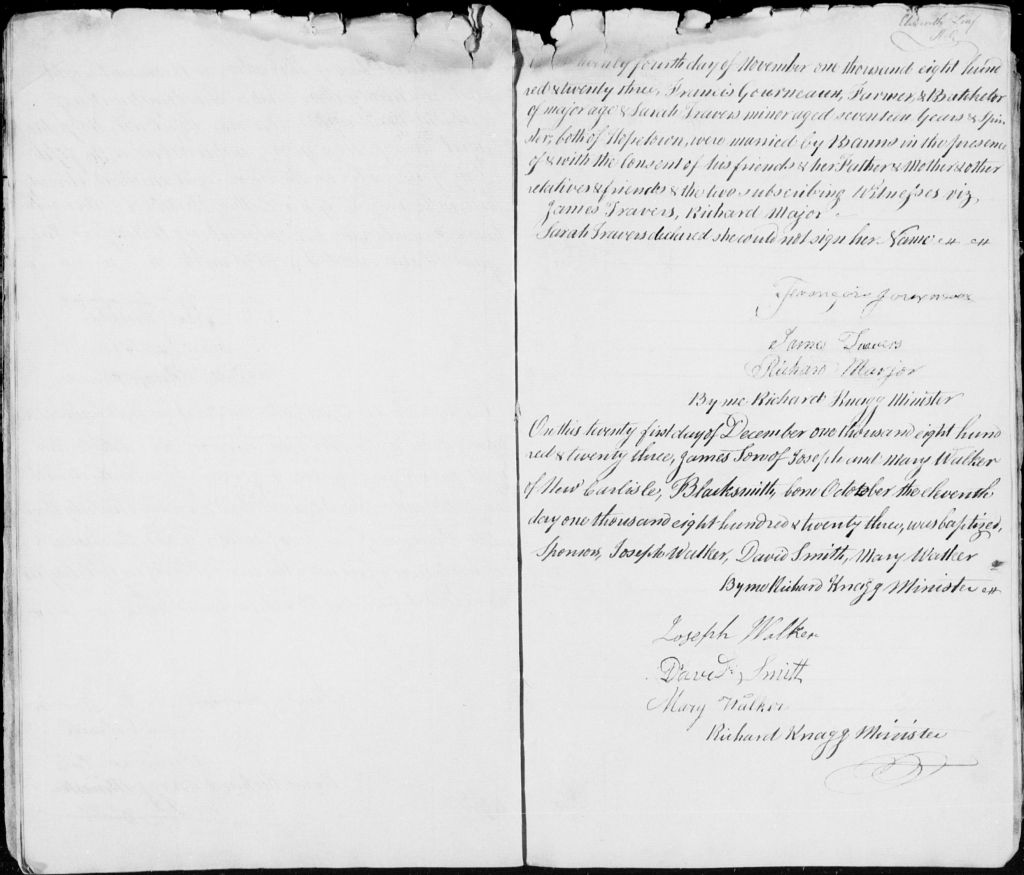 twenty fourth day of November one thousand eight hund
red & twenty three, Francis Gourneaux, Farmer, & Batchelor
of major age & Sarah Travers minor aged seventeen Years & Spin
ster, both of Hopetown, were married by Banns in the presence
of & with the Consent of his friends & her Father & Mother & other
relatives & friends & the two subscribing Witnesses viz,
James Travers, Richard Major
Sarah Travers declared she could not sign her Name
James Travers
Richard Marjor
By me Richard Knagg Minister
On this twenty first day of December one thousand eight hund
red & twenty three, James Son of Joseph and Mary Walker
of New Carlisle, Blacksmith, born October the eleventh
day one thousand eight hundred & twenty three, was baptized,
Sponsors, Joseph Walker, David Smith, Mary Walker
By me Richard Knagg Minister
Joseph Walker
David Smith
Mary Walker
Richard Knagg Minister